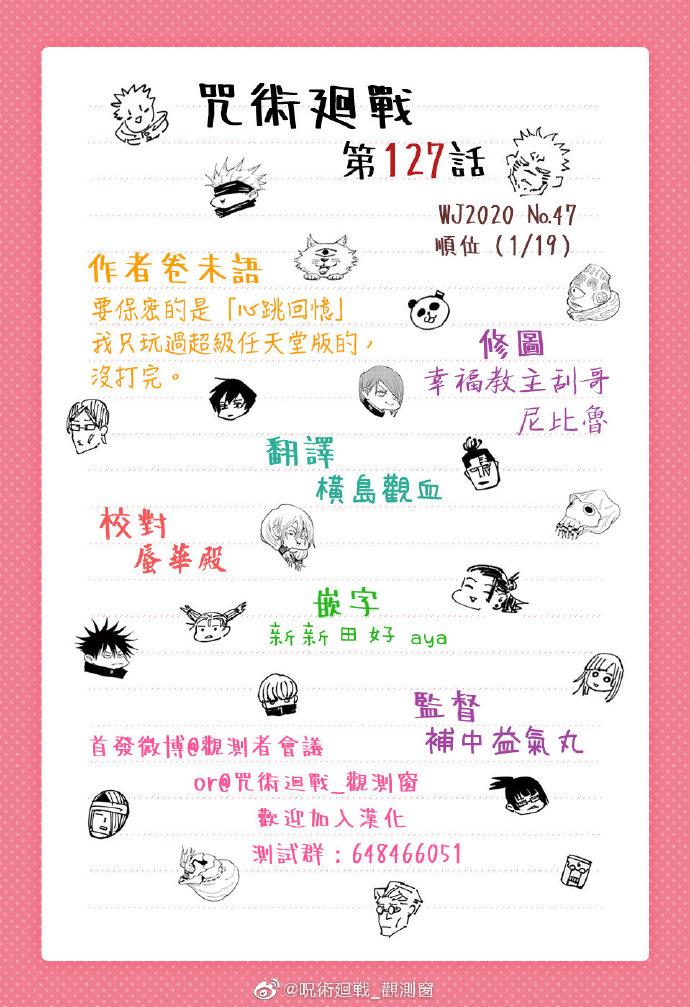 咒術廻戰
第127話
WJ2020 No.47
順位（1/19）
作者卷末語
要保密的是「心跳回憶」
我只玩過超級任天堂版的，
沒打完。
修圖
幸福教主刮哥
尼比魯
翻譯
橫島觀血
校對
蜃華殿
嵌字
新新田好 aya
監督
補中益氣丸
首發微博@觀測者會議
or@咒術迴戰_觀測窗
歡迎加入漢化
測試群：648466051
@呪術廻戦_觀測窗